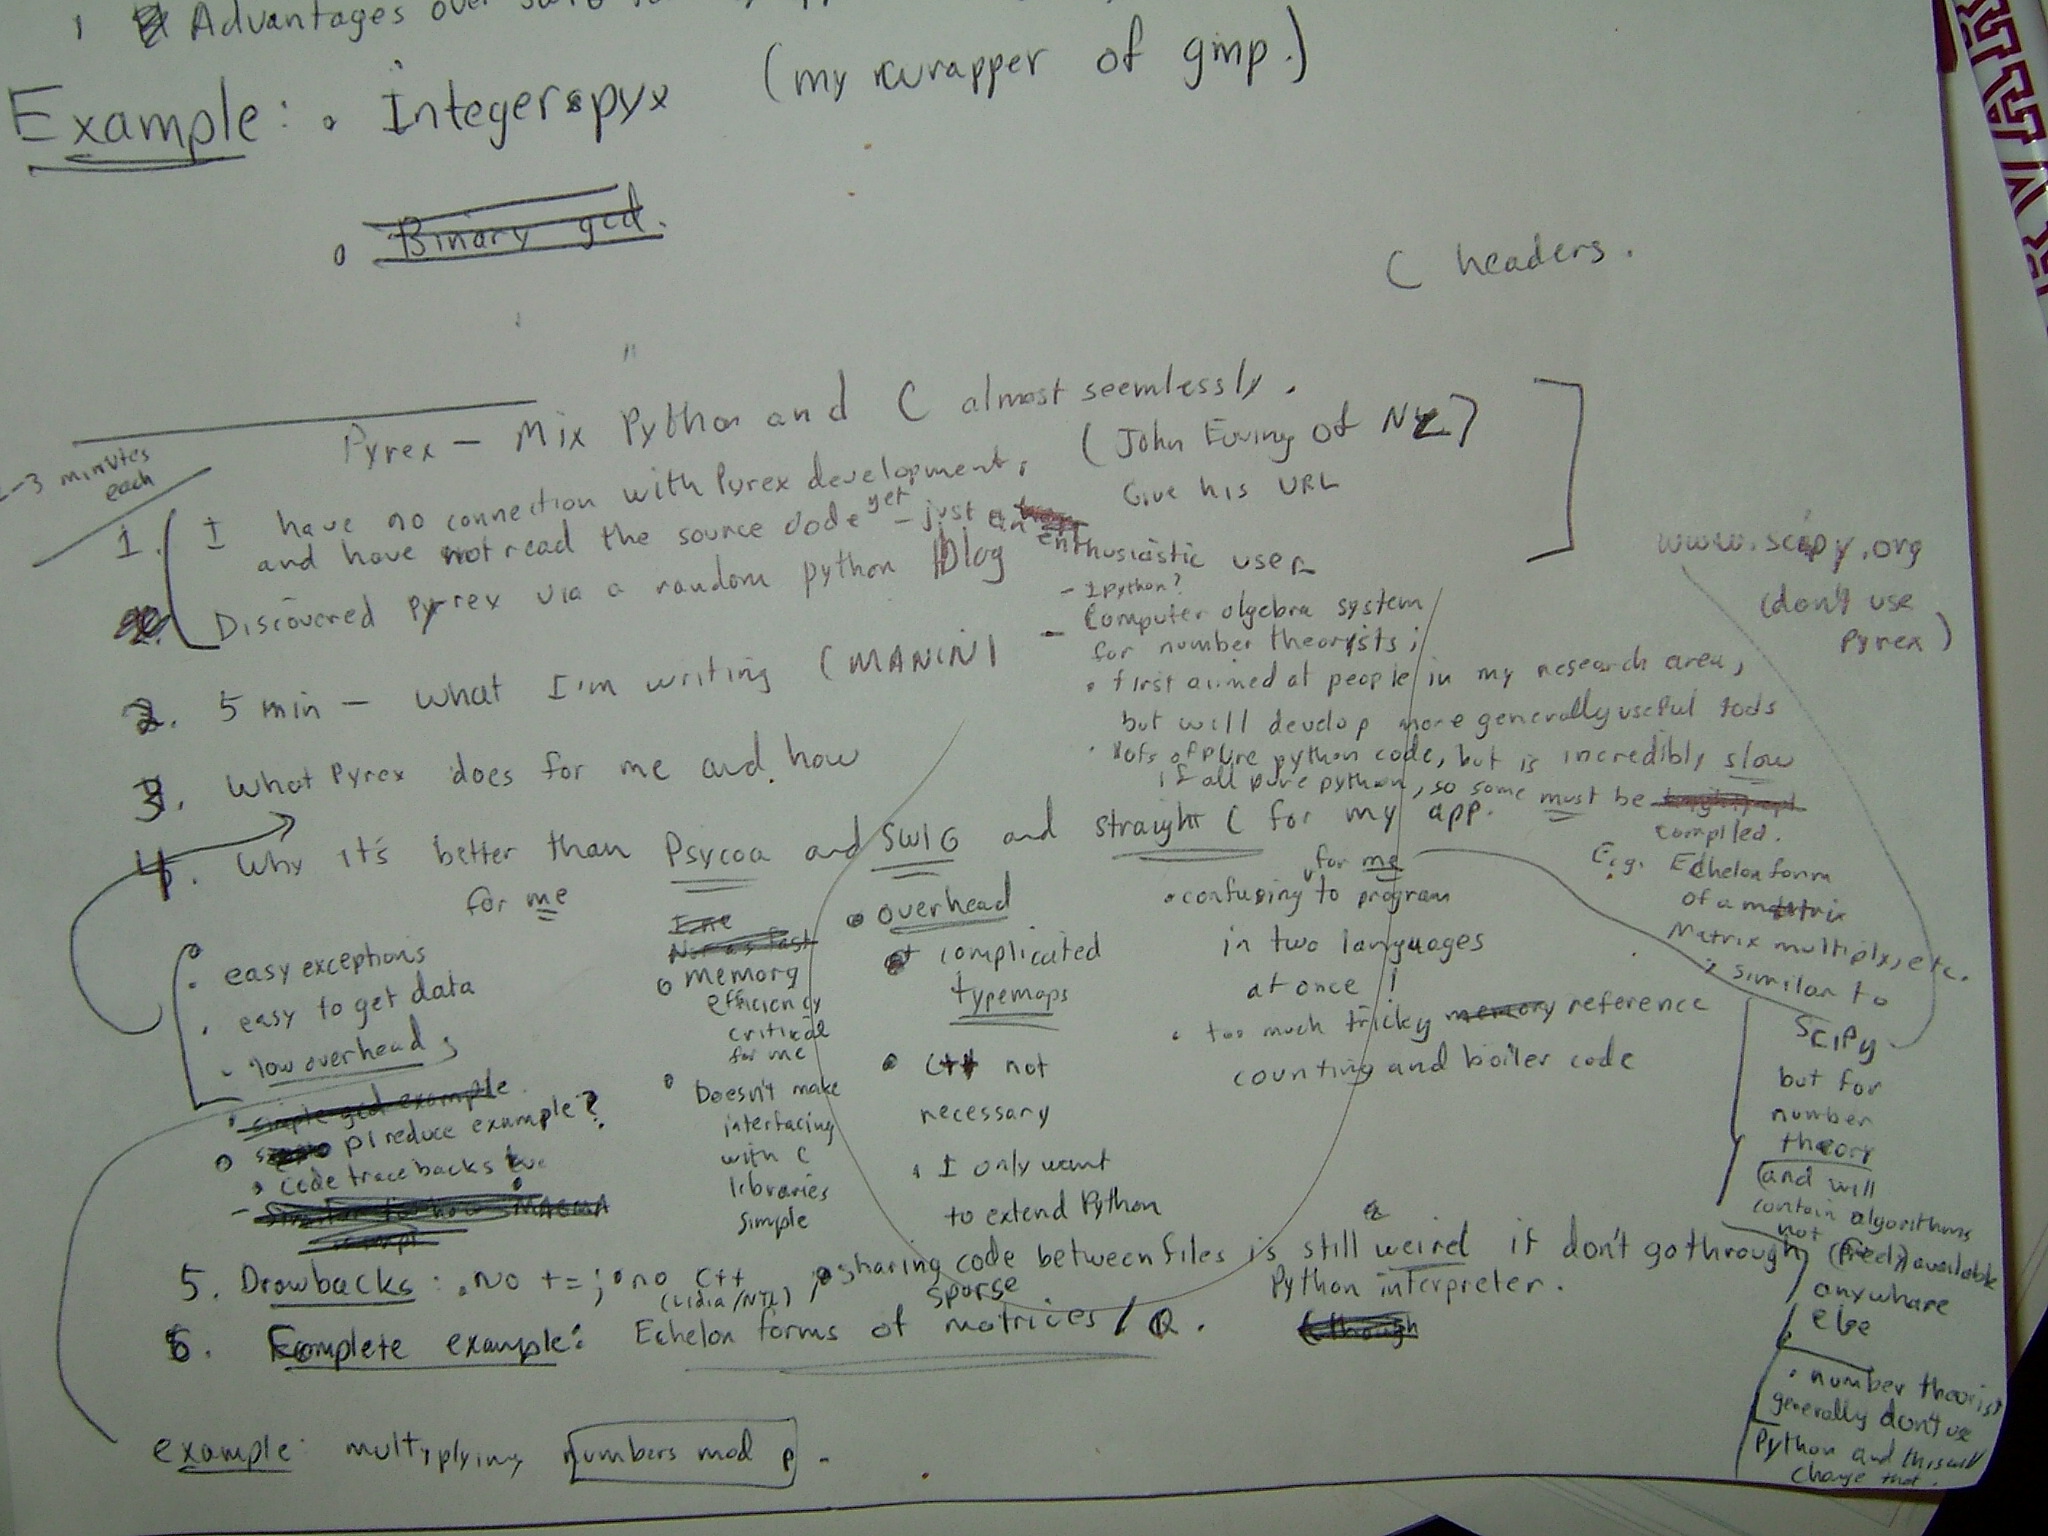 Advantages over
Example: Integer.pyx (my wrapper of gmp.)
Binary gcd.
C headers.
Pyrex - Mix Python and C almost seemlessly.
(John Ewing of NZ)
Give his URL
-3 minutes
each
1. I have no connection with Pyrex development,
and have not read the source code yet - just an enthusiastic user
Discovered pyrex via a random python blog
- Ipython?
www.scipy.org
(don't use
Pyrex)
2. 5 min - what I'm writing (MANIN) - Computer algebra system
for number theorists;
• first aimed at people in my research area,
but will develop more generally useful tools
• lots of pure python code, but is incredibly slow
if all pure python, so some must be
compiled.
E.g. Echelon form
of a matrix
Matrix multiply, etc.
3. What Pyrex does for me and how
4. Why it's better than Psycoa and SWIG and straight C for my app.
for me
• easy exceptions
• easy to get data
- low overhead
simple gcd example.
p1 reduce example?
• code tracebacks
• memory
efficiency
critical
for me
• Doesn't make
interfacing
with C
libraries
simple
• overhead
• complicated
typemaps
• C++ not
necessary
• I only want
to extend Python
for me
• confusing to program
in two languages
at once!
• too much tricky memory reference
counting and boiler code
• similar to
SciPy
but for
number
theory
and will
contain algorithms
not (freely) available
anywhare
else
• number theorist
generally don't use
Python and this will
change that.
5. Drawbacks: • No +=; • no C++ • sharing code between files is still weired if don't go through
(Lidia/NTL)
Python interpreter.
(though
sparse
6. Complete example: Echelon forms of matrices/Q.
example: multyplying numbers mod p.